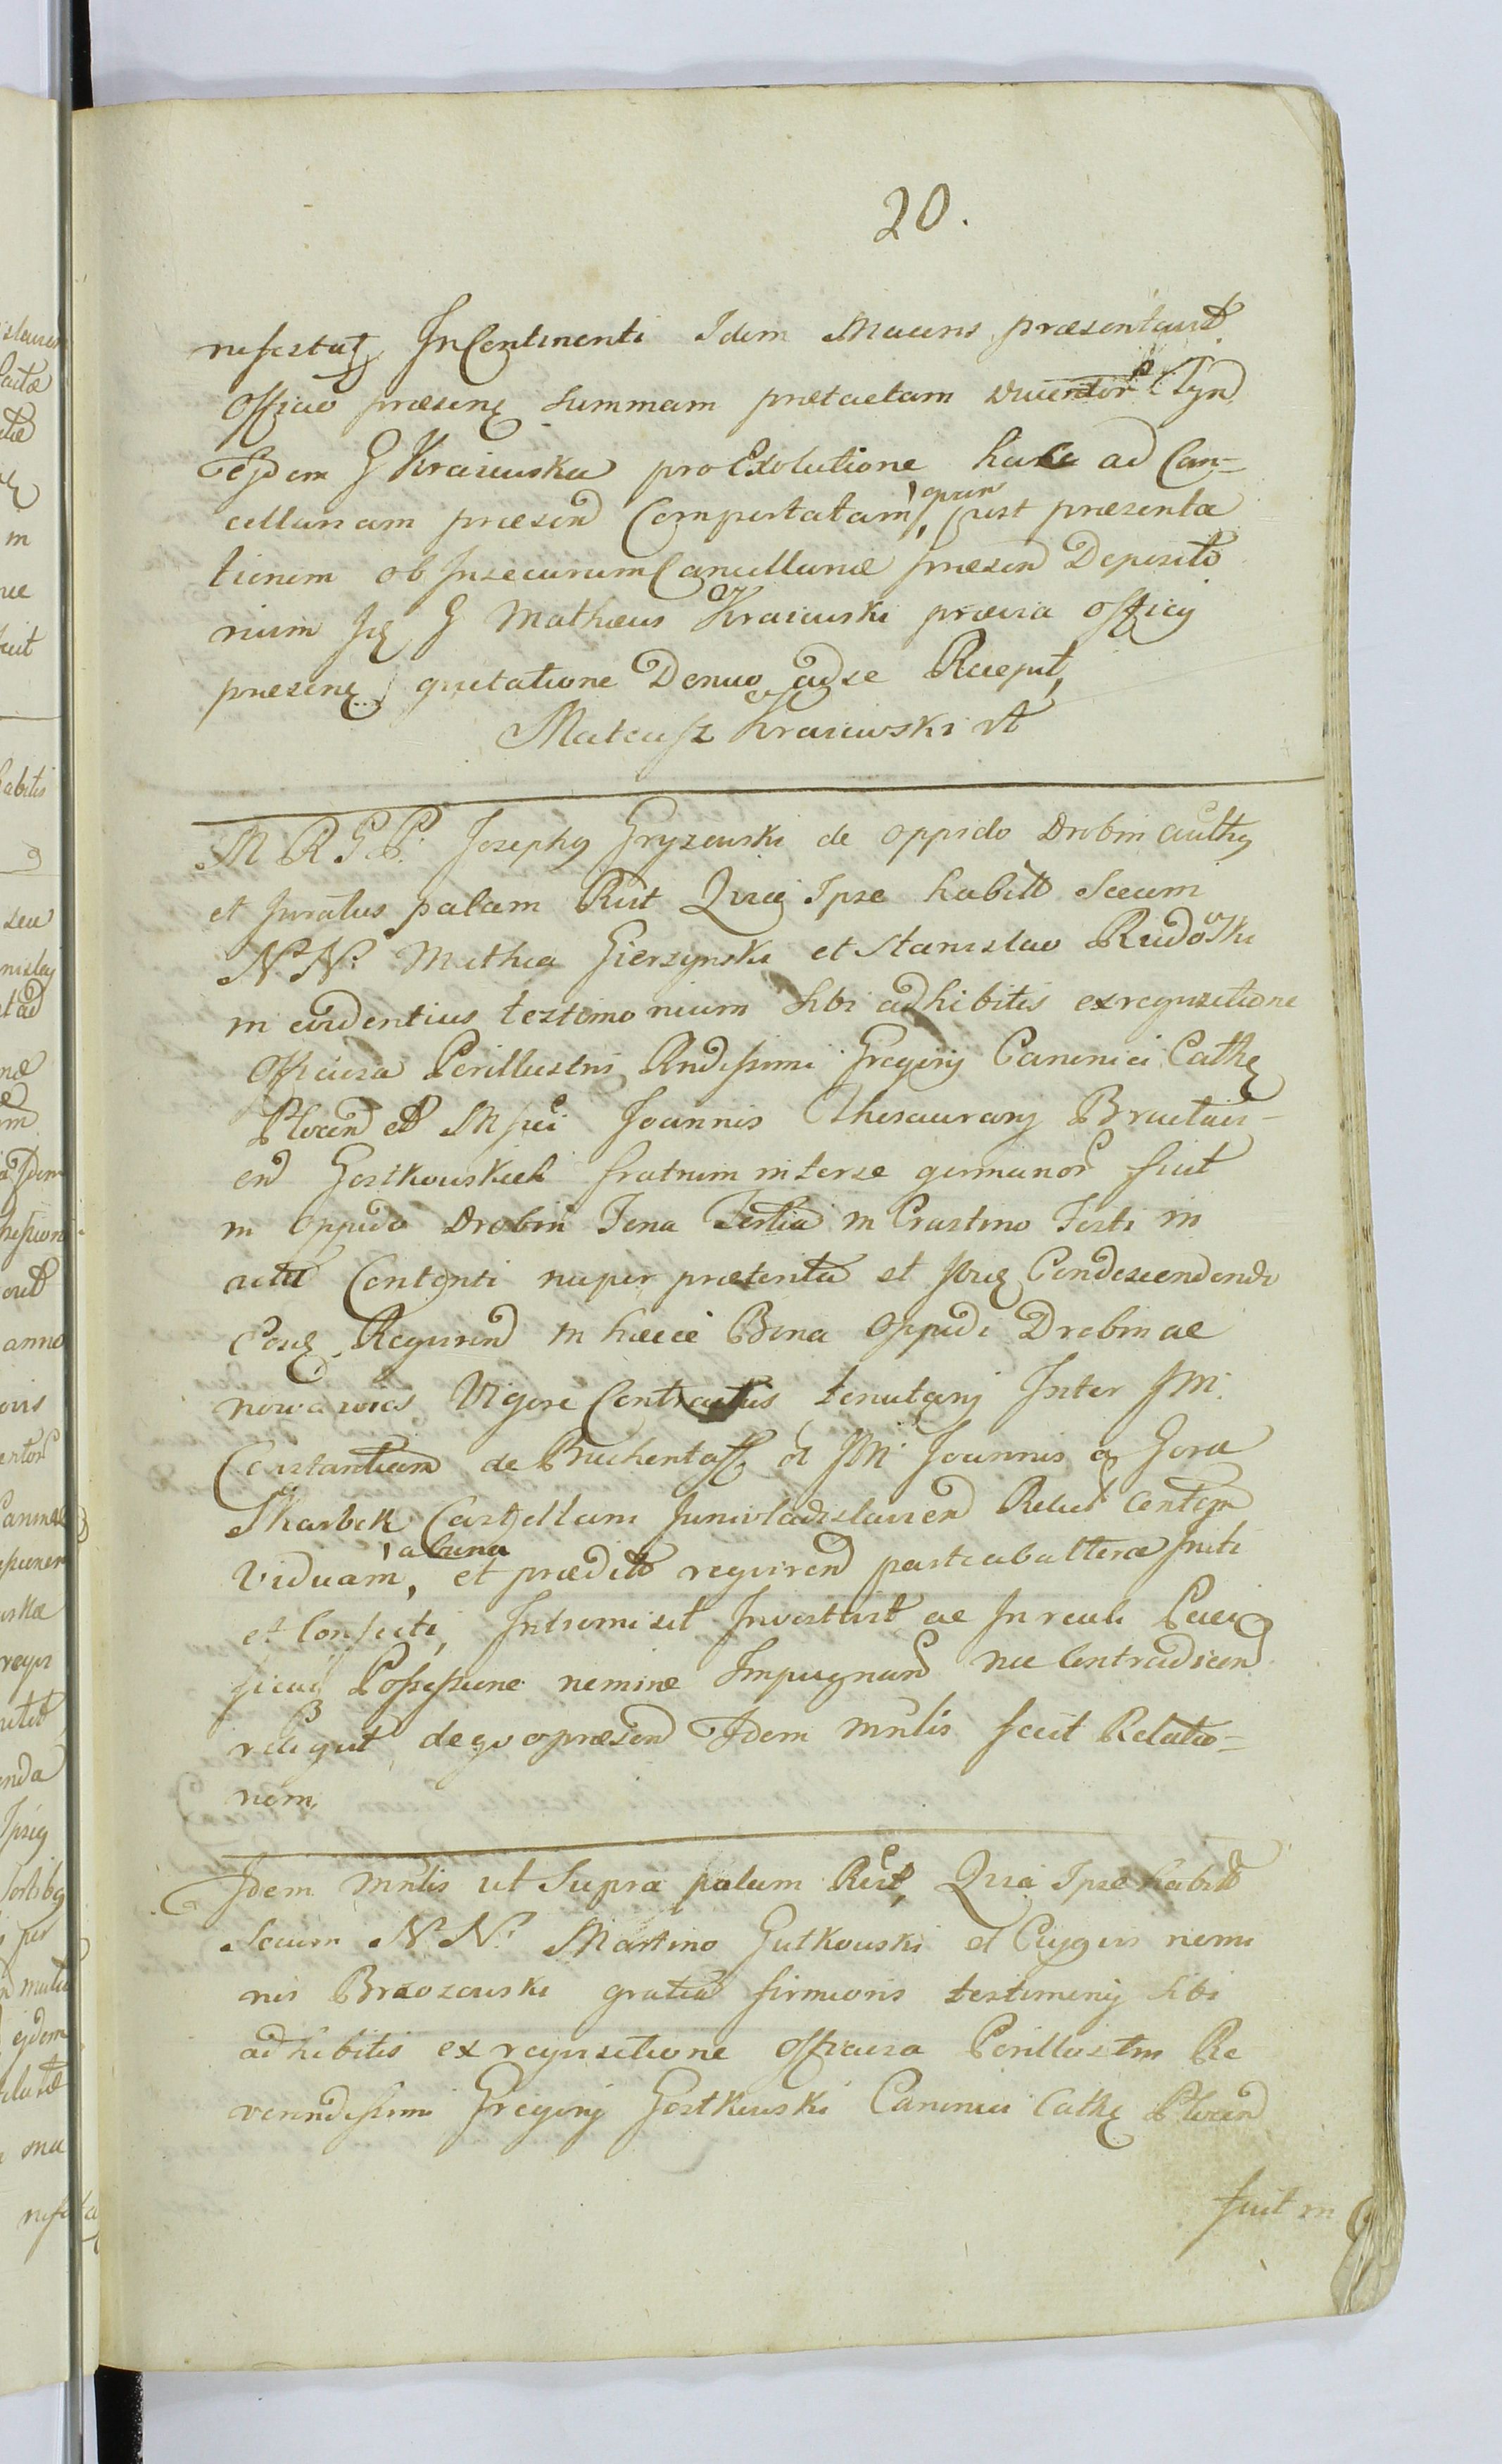 20.
nifestat InContinenti Idem Macens præsentavit
Officio præsenę Summam prætactam Ducentor Tÿnf
Ejdem G Kraiewska pro Exolutione hance ad Can=
cellariam præsend Comportatam, quam post præsenta
tionem ob Insecurum Cancellariæ præsend Deposito
rium Iię G Mathæus Kraiewski prævia officij
præsenę quietatione Denuo ad se Recepit,
Mateusz Kraiewski
M R G P: Joseph9 Gryzewski de oppido Drobin auth9
et Juratus palam Rcit Quia Ipse habitt Secum
N: N: Mathia Gierzynski et Stanislao Rudowski
in evidentius testimonium Sibi adhibitis exrequisitione
Officiosa Perillustris Rndissimi Gregorij Canonici Cathę
Plocen et Joannis Thesaurarij Braclavi=
en Gostkowskich fratrum interse germanor fuit
in Oppido Drobin Feria Tertia in Crastino Festi in
actu Contenti nuper præterita et Condescendendo
Requirend in hæcce Bona Oppidi Drobin ac
Nowawies Vigore Contractus tenutarij Inter JM:
Constantiam de et JM: Joannis a Gora
Skarbek Castellani Junivladislavien Relict Contem
Viduam, ab una et prædict requirend parte ab altera Initi
et Confecti, Intromisit Investivit ac In reali Paci
fica Possessione nemine Impugnan nec Contradicen
reliquit de quo præsend Idem mnlis fecit Relatio=
nem,
Idem mnlis ut Supra palam Rcit, Quia Ipse habitt
Secum N: N: Martino Gutkowski et Cujgvis nomi
nis Brzozowski gratia firmioris testimonij Sibi
adhibitis ex requisitione officiosa Perillustris Re
verendissimi Gregorij Gostkowski Canonici Cathę Plocen
fuit in